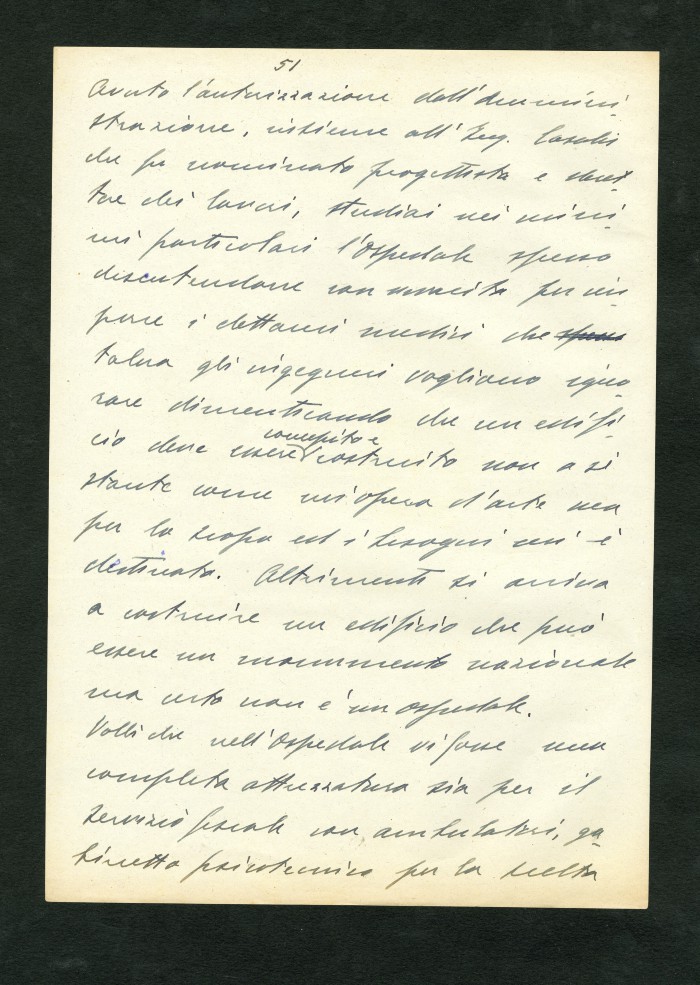 51
Avuto l'autorizzazione dell'Ammini-
strazione, insieme all'Ing.
che fu nominato progettista e diret-
tore dei lavori, studiai nei mini-
mi particolari l'Ospedale spesso
discutendone con per im-
porre i dettami medici che spesso
talora gli ingegneri vogliono igno-
rare dimenticando che un edifi-
cio deve essere concepito e costruito non a sè
stante come un'opera d'arte ma
per lo scopo ed i bisogni cui è
destinato. Altrimenti si arriva
a costruire un edificio che può
essere un monumento nazionale
ma certo non è un ospedale.
Volli che nell'Ospedale vi fosse una
completa attrezzatura sia per il
servizio fiscale con ambulatori, ga-
binetto psicotecnico per la scelta